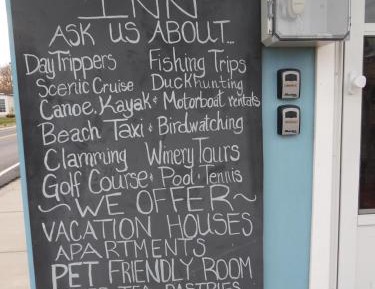 INN
ASK US ABOUT...
Day Trippers Fishing Trips
Scenic Cruise Duck hunting
Canoe, Kayak & Motorboat rentals
Beach Taxi & Birdwatching
Clamming Winery Tours
Golf Course & Pool & Tennis
~WE OFFER~
VACATION HOUSES
APARTMENTS
PET FRIENDLY ROOM
TEA PASTRIES